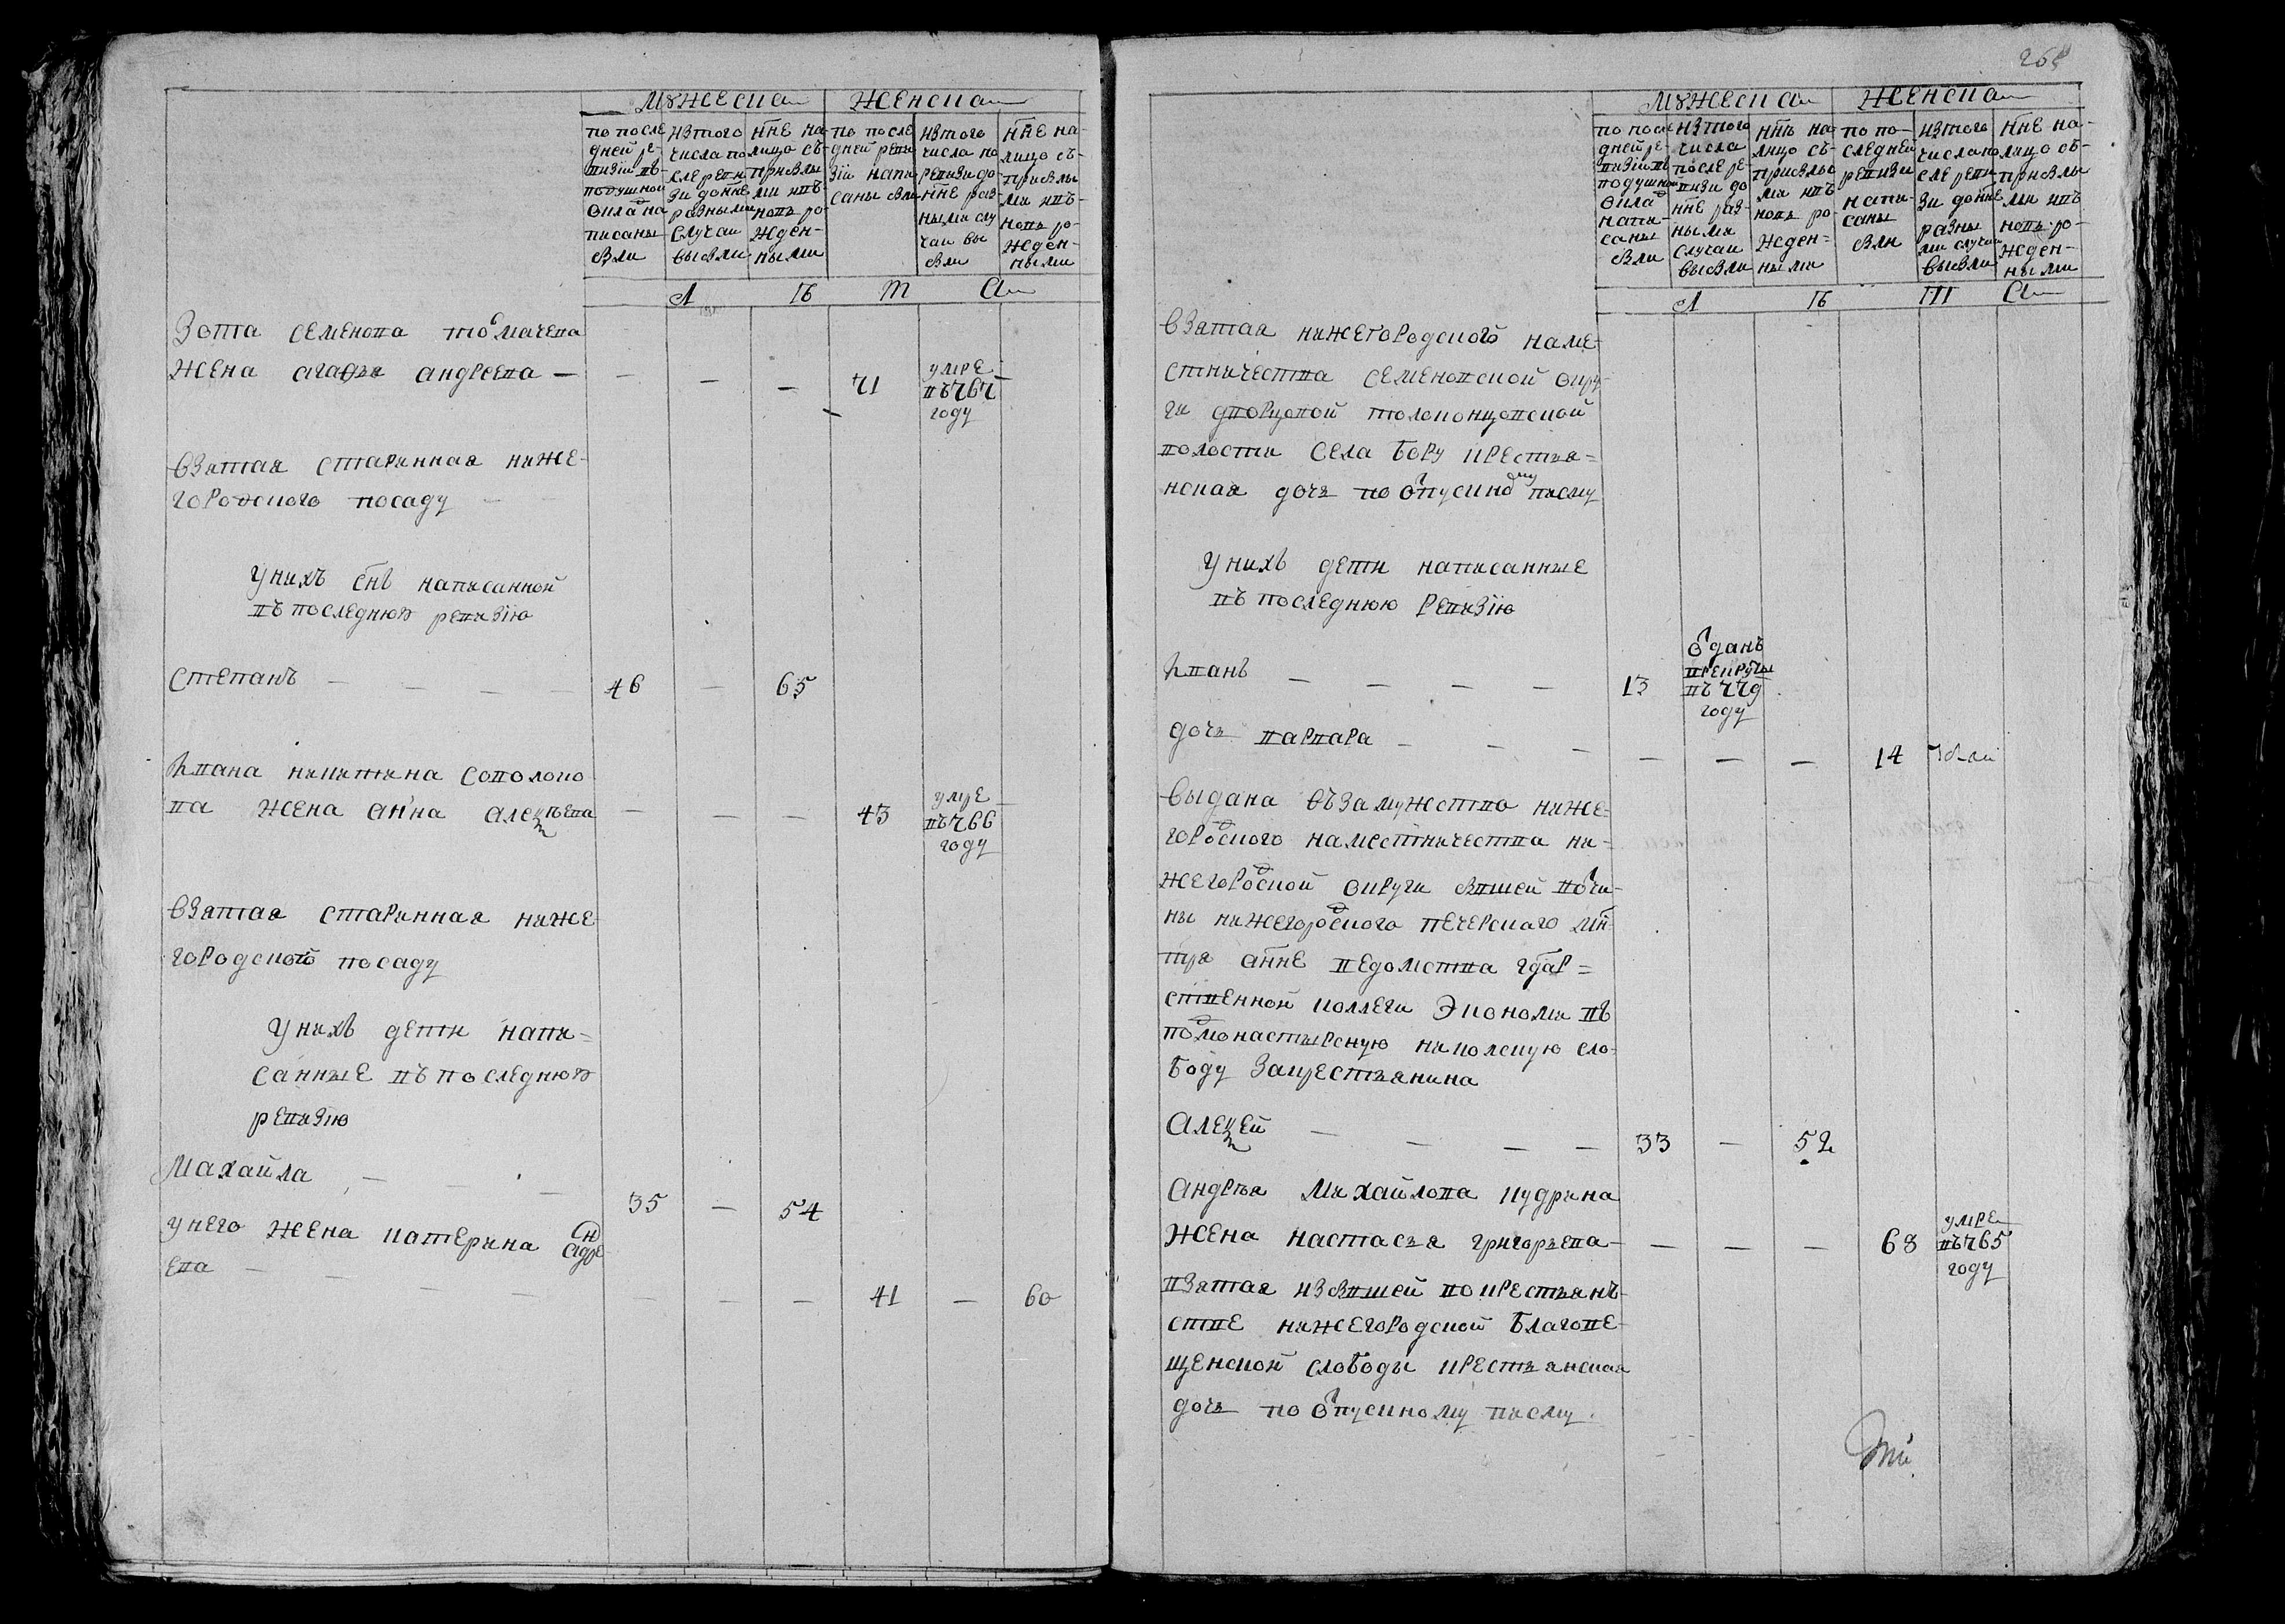 мужеска
женска
по после
дней ре-
визіи въ
подушной
оклад на
писаны
были
изтого
числа по
сле реви
зи доннѣ
разными
случаи
выбыли
ннѣ на-
лицо съ
прибылы
ми ивъ
новь ро-
жден-
ными
по после
дней реви
зіи напи
саны были
изтого
числа по
ревизи до
ннѣ раз
ными слу
чаи вы
были
ннѣ на-
лицо съ-
прибылы
ми ивъ-
новь ро-
жден-
ными
Л Ѣ Т А
Зота семенова толмачева
жена агафья андреева — 71 умре
въ 767
году
взятая старинная ниже-
городского посаду
у нихъ снъ написанной
въ последнюю ревизію
степанъ — 46 — 65
Ивана никитина соколоко
ва жена анна алексѣева — 43 умре
въ 766
году
взятая старинная ниже
городской посаду
у нихъ дети напи-
санные въ последнюю
ревизію
михайла — 35 — 54
у него жена катерина андре
ева — 41 — 60
мужеска
женска
по после
дней ре-
визіи въ
подушной
оклад
напи-
саны
были
изтого
числа
после ре-
визи до
ннѣ раз-
ными
случаи
выбыли
ннѣ на-
лицо съ-
прибылы
ми ивъ
новь ро-
жден=
ными
по по-
следней
ревизи
напи-
саны
были
изтого
числапо
сле реви
зи доннѣ
разны
ми случаи
выбыли
ннѣ на-
лицо съ-
прибылы
ми ивъ
новь ро-
жден-
ными
Л Ѣ Т А
взятая нижегородского наме-
стничества семеновской окру-
ги дворцовой толоконцовской
волости села бору крестья=
нская дочь по отпускному писму
у нихъ дети написанные
въ последнюю ревизію
Иванъ — 13 отданъ
врекруты
въ 779
году
дочь варвара — 14
выдана въ замужство ниже=
городского наместничества ни-
жегородской округи бывшей вотчи-
ны нижегородского печерского мн-
тря аннѣ ведомства гдар=
ственной коллеги экономи въ
подмонастырскую никольскую сло-
боду закрестьянина
алексей — 33 — 52
андрея михайлова кудрина
жена настасья григорьева — 68 умре
въ 765
году
взятая избывшей во крестьянъ-
стве нижегородской благове-
щенской слободы крестьянская
дочь по отпускному писму.